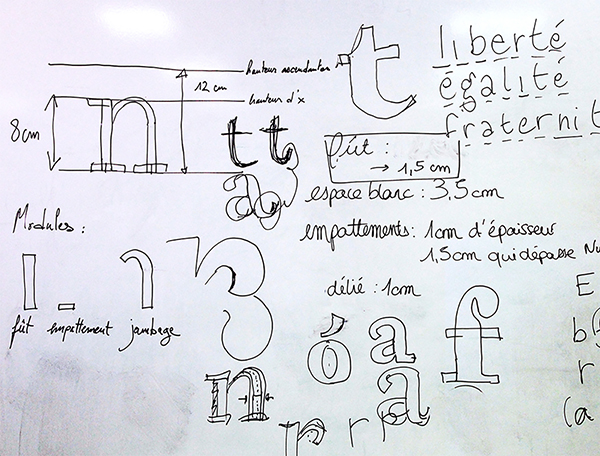 hauteur ascendantes
12 cm
hauteur d'x
8cm
n
t t
a
t
liberté
égalité
fraternit
fût :
→ 1,5 cm
espace blanc : 3,5 cm
empattements : 1cm d'épaisseur
1,5cm qui dépasse
délié : 1cm
Modules :
fût empattement jambage
3
n
ó a f
a
r r
E
b
r
(a